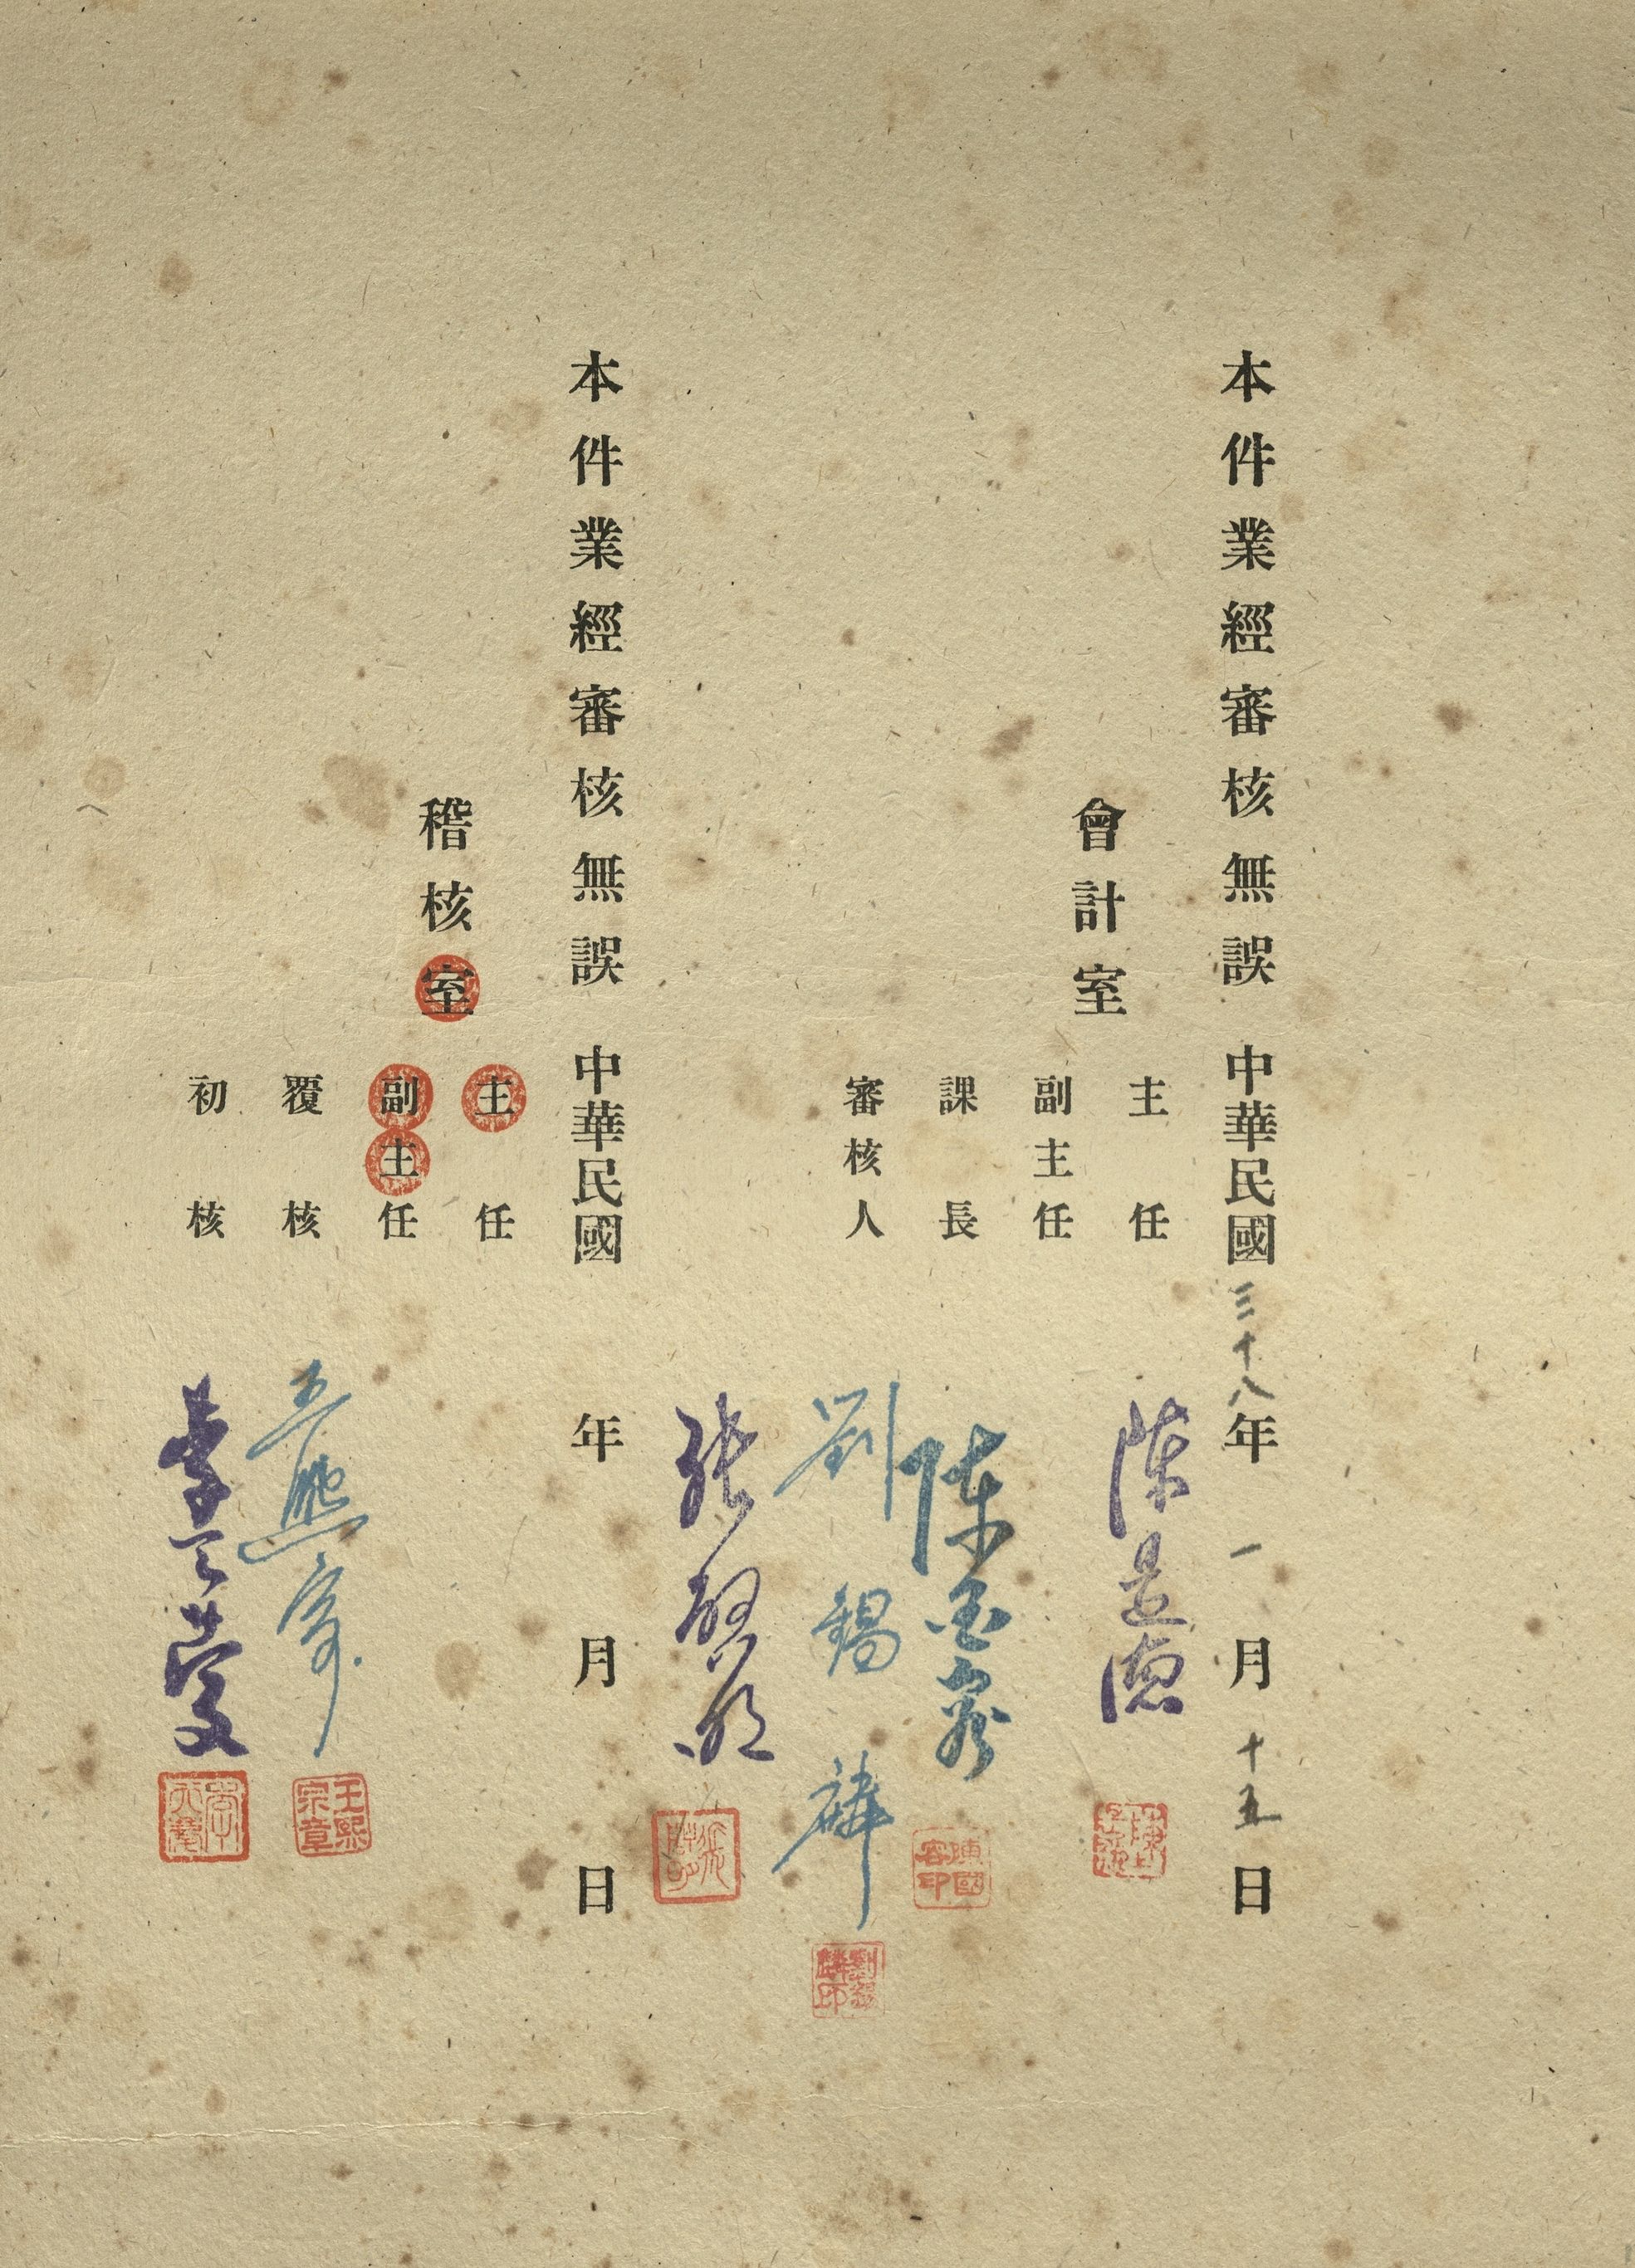 本件業經審核無誤 中華民國三十八年一月十五日
會計室
主任 陳
副主任 陳國容
課長 劉錫麟
審核人 張
本件業經審核無誤 中華民國 年 月 日
稽核室
主任
副主任
覆核 王熙宗
初核 李
陳國容印
劉錫麟印
王熙宗章